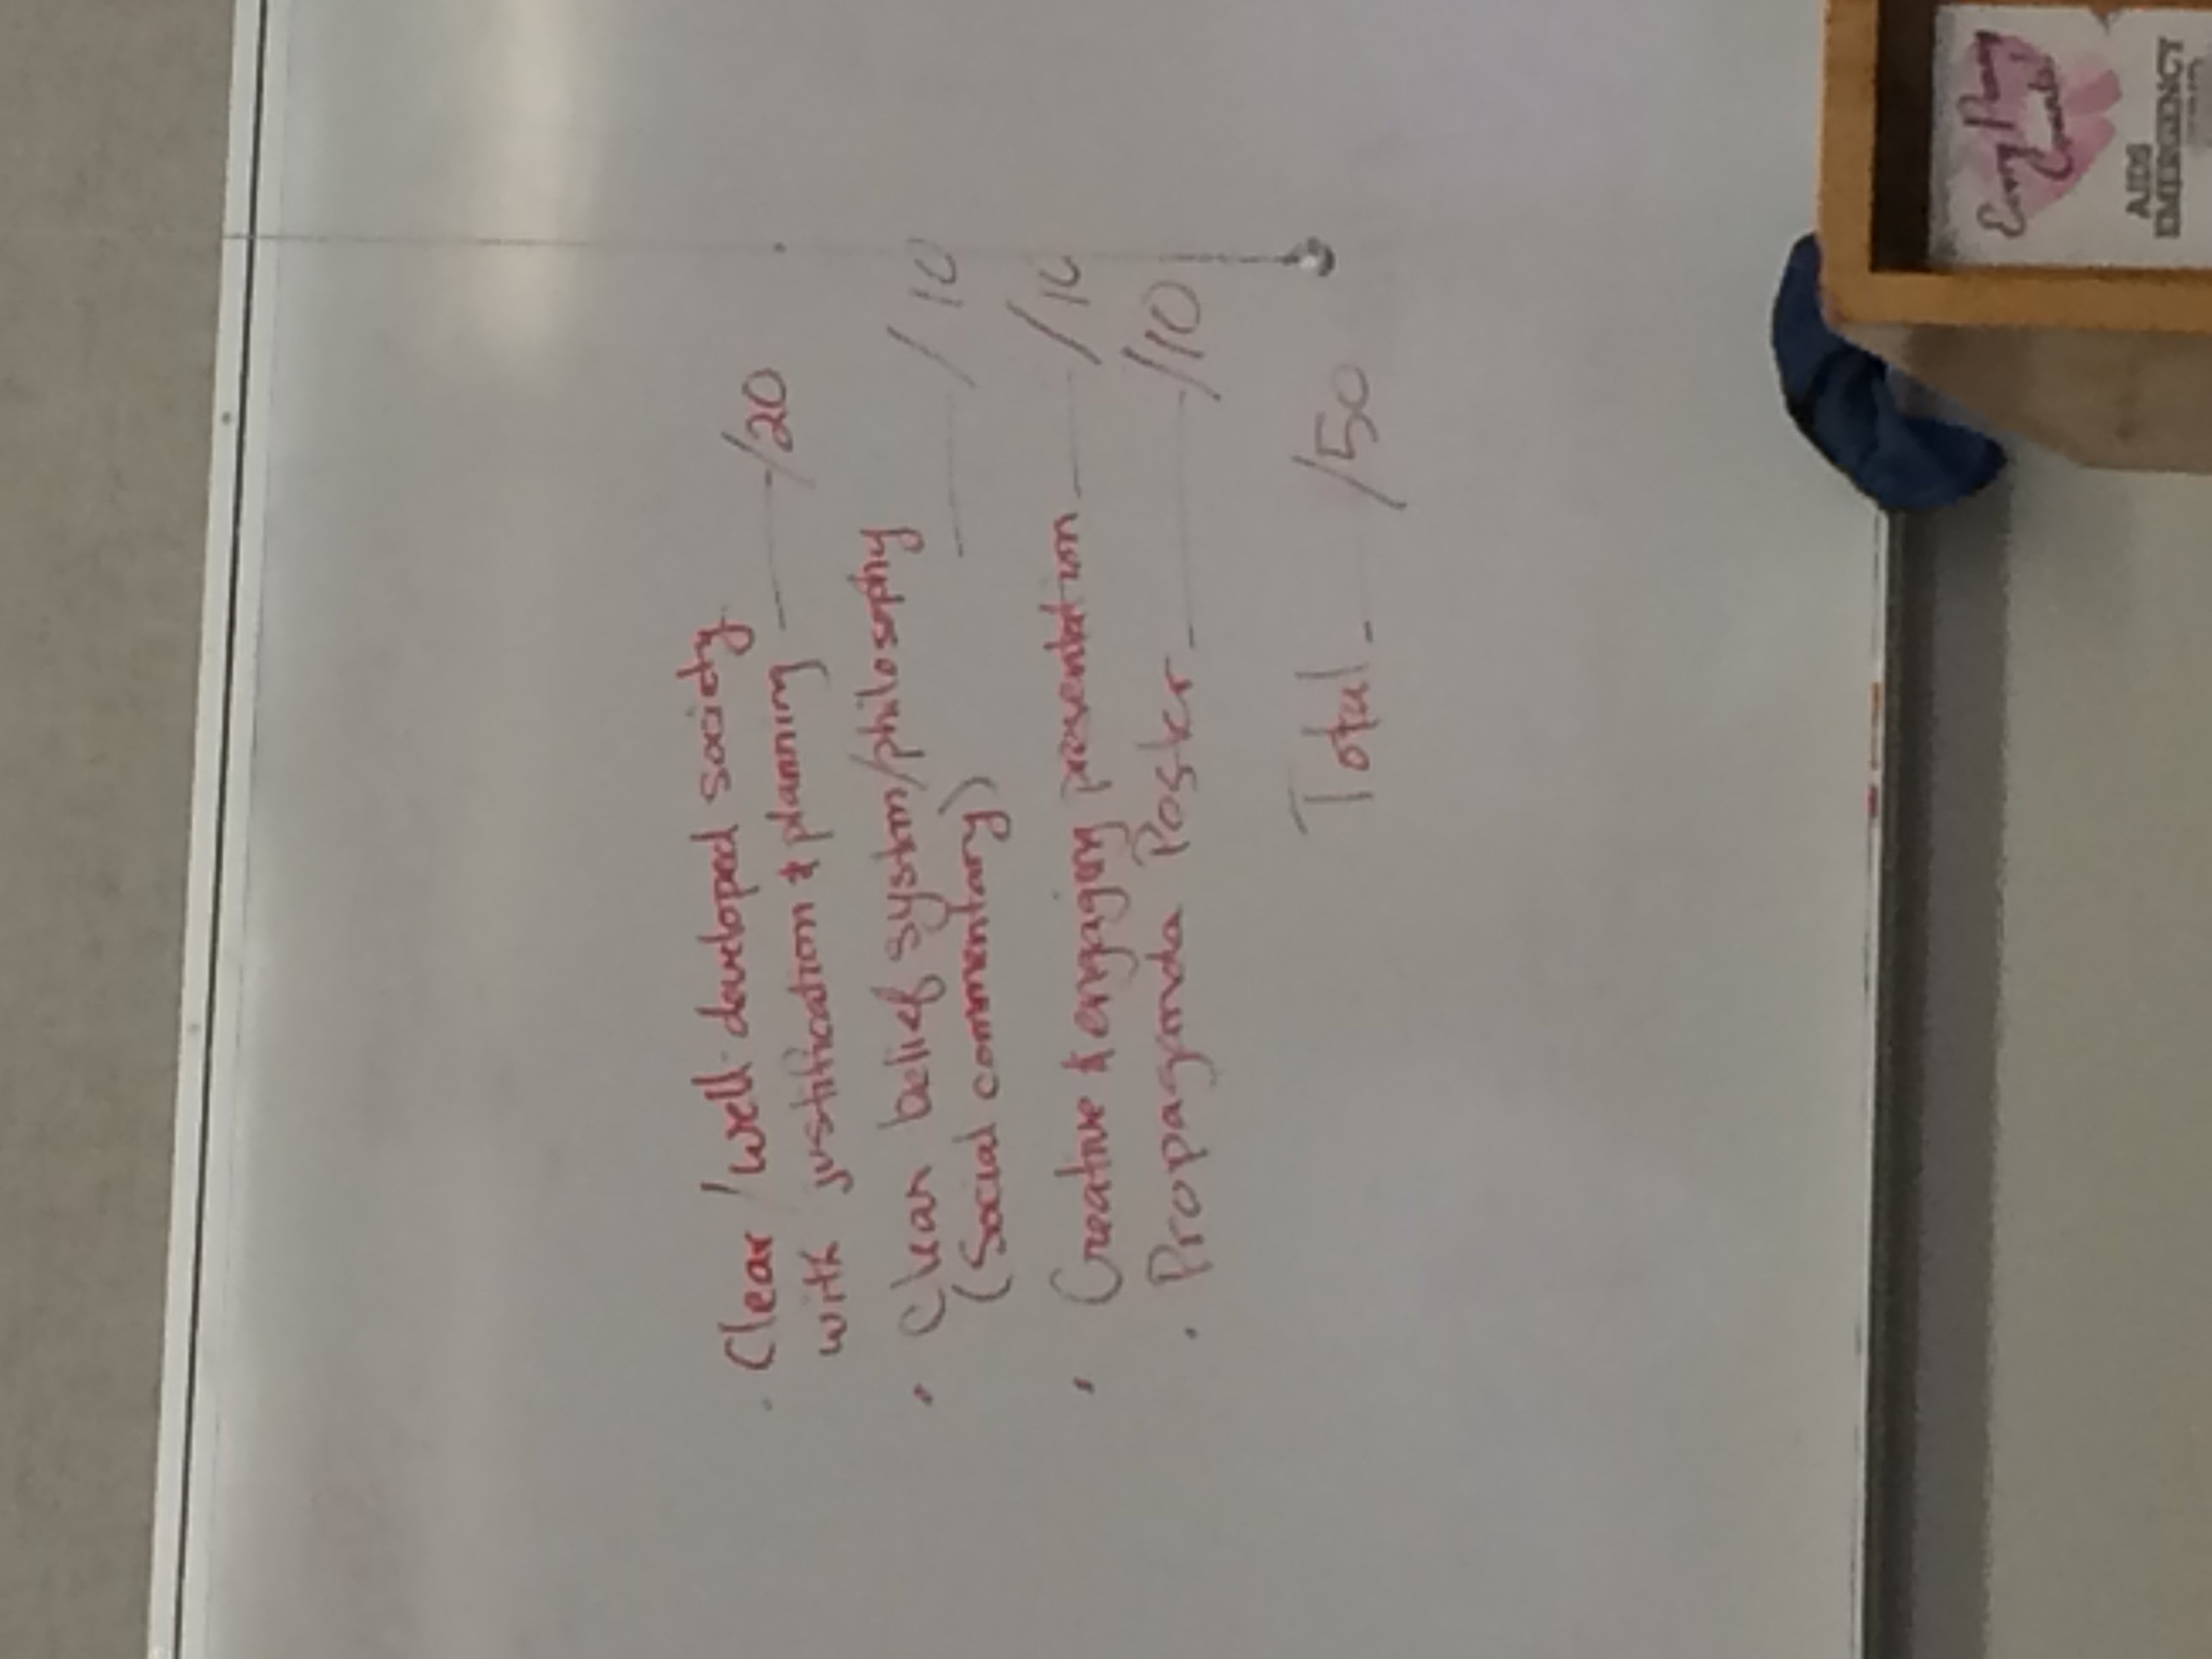 · Clear / well-developed society
with justification & planning — /20
· Clear belief system/philosophy
(Social commentary) — /10
· Creative & engaging presentation — /10
· Propaganda Poster — /10
Total — /50
Every Penny
Counts!
AIDS
EMERGENCY